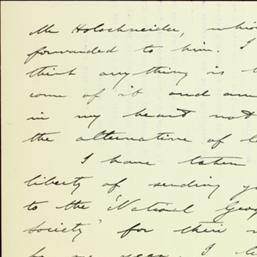 Mr Holschneider, which
forwarded to him. I
think anything is t
come of it and am
in my heart not
the alternative of l
I have taken
liberty of sending yo
to the "National Geog
Society" for their